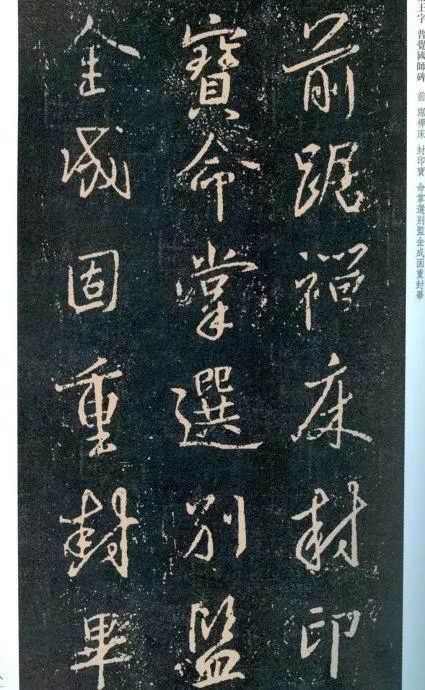 前踞禪床封印
寶命掌選別監
金成固重封畢
王字 普覺國師碑 前 踞禪床 封印寶 命掌選別監金成固重封畢